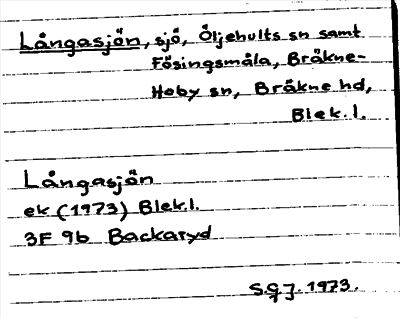 Långasjön, sjö, Öljehults sn samt
Fösingsmåla, Bräkne-
Hoby sn, Bräkne hd,
Blek. l.
Långasjön
ek (1973) Blek. l.
3F 9b Backaryd
S.G.J. 1973.